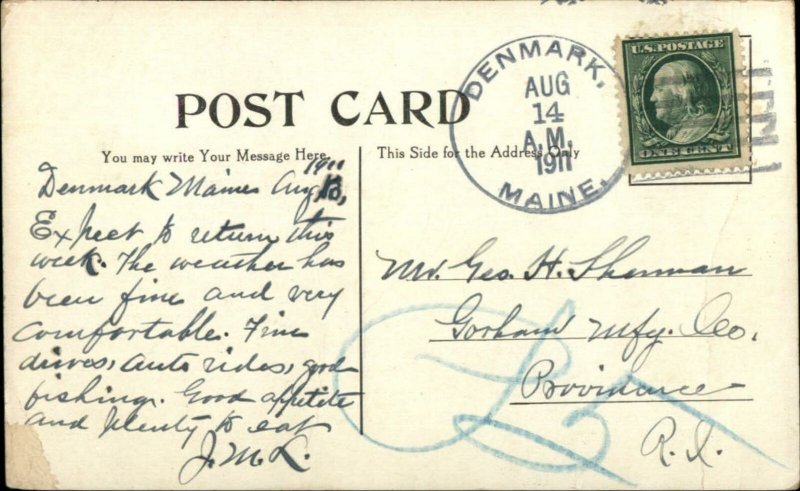 POST CARD
You may write Your Message Here.
This Side for the Address Only
DENMARK,
AUG
14
A.M.
1911
MAINE.
U.S. POSTAGE
ONE CENT
1911
Denmark Maine Aug 13,
Expect to return this
week. The weather has
been fine and very
comfortable. Fine
drives, auto rides, good
fishing. Good appetite
and plenty to eat
J.M.L.
Mr. Geo. H. Sherman
Gorham Mfg. Co.
Providence
R.I.